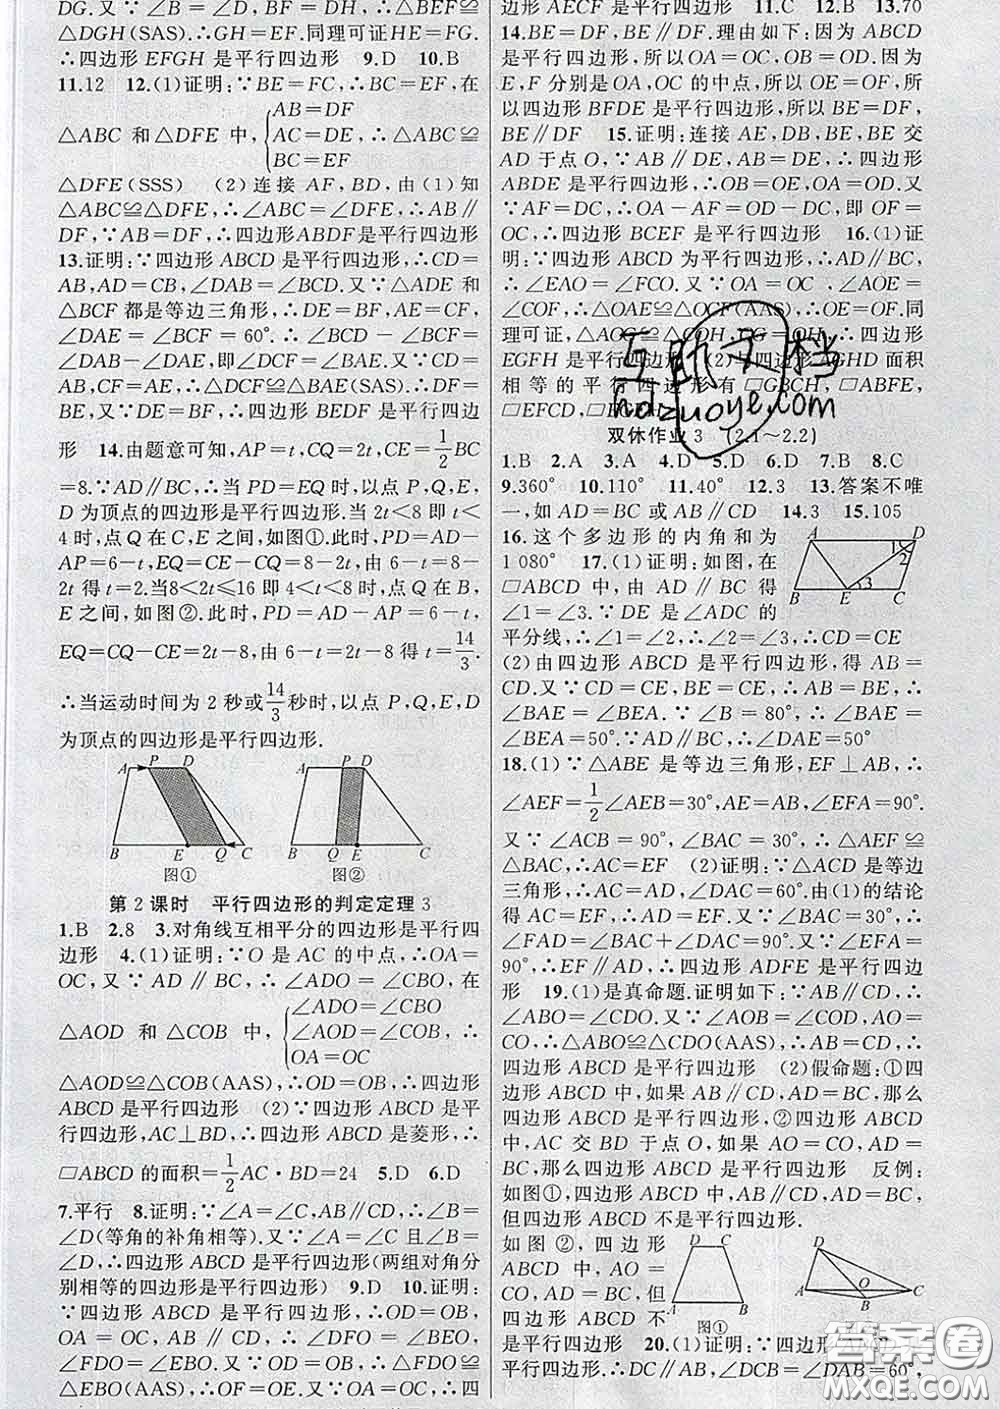 DG.又∵∠B=∠D,BF=DH,∴△BEF≌
△DGH(SAS).∴GH=EF.同理可证HE=FG.
∴四边形EFGH是平行四边形 9.D 10.B
11.12 12.(1)证明:∵BE=FC,∴BC=EF,在
△ABC和△DFE中,{AB=DF AC=DE BC=EF,∴△ABC≌
△DFE(SSS) (2)连接AF,BD,由(1)知
△ABC≌△DFE,∴∠ABC=∠DFE,∴AB∥
DF,∵AB=DF,∴四边形ABDF是平行四边形
13.证明:∵四边形ABCD是平行四边形,∴CD=
AB,AD=CB,∠DAB=∠BCD.又∵△ADE和
△BCF都是等边三角形,∴DE=BF,AE=CF,
∠DAE=∠BCF=60°.∴∠BCD-∠BCF=
∠DAB-∠DAE,即∠DCF=∠BAE.又∵CD=
AB,CF=AE,∴△DCF≌△BAE(SAS).∴DF=
BE,又∵DE=BF,∴四边形BEDF是平行四边
形 14.由题意可知,AP=t,CQ=2t,CE=1/2BC
=8.∵AD∥BC,∴当PD=EQ时,以点P,Q,E,
D为顶点的四边形是平行四边形.当2t<8即t<
4时,点Q在C,E之间,如图①.此时,PD=AD-
AP=6-t,EQ=CE-CQ=8-2t,由6-t=8-2t
得t=2.当8<2t≤16即4<t<8时,点Q在B,
E之间,如图②.此时,PD=AD-AP=6-t,
EQ=CQ-CE=2t-8,由6-t=2t-8得t=14/3.
∴当运动时间为2秒或14/3秒时,以点P,Q,E,D
为顶点的四边形是平行四边形.
A P D B E Q C
图①
A P D B Q E C
图②
第2课时 平行四边形的判定定理3
1.B 2.8 3.对角线互相平分的四边形是平行四
边形 4.(1)证明:∵O是AC的中点,∴OA=
OC,又∵AD∥BC,∴∠ADO=∠CBO,在
△AOD和△COB中,{∠ADO=∠CBO ∠AOD=∠COB, OA=OC ∴
△AOD≌△COB(AAS),∴OD=OB,∴四边形
ABCD是平行四边形 (2)∵四边形ABCD是平
行四边形,AC⊥BD,∴四边形ABCD是菱形,∴
▱ABCD的面积=1/2AC·BD=24 5.D 6.D
7.平行 8.证明:∵∠A=∠C,AB∥CD,∴∠B=
∠D(等角的补角相等).又∵∠A=∠C且∠B=
∠D,∴四边形ABCD是平行四边形(两组对角分
别相等的四边形是平行四边形) 9.D 10.证明:
∵四边形ABCD是平行四边形,∴OD=OB,
OA=OC,AB∥CD,∴∠DFO=∠BEO,
∠FDO=∠EBO.又∵OD=OB,∴△FDO≌
△EBO(AAS),∴OF=OE.又∵OA=OC,∴四
边形AECF是平行四边形 11.C 12.B 13.70
14.BE=DF,BE∥DF.理由如下:因为ABCD
是平行四边形,所以OA=OC,OB=OD.因为
E,F分别是OA,OC的中点,所以OE=OF,所
以四边形BFDE是平行四边形,所以BE=DF,
BE∥DF 15.证明:连接AE,DB,BE,BE交
AD于点O,∵AB∥DE,AB=DE,∴四边形
ABDE是平行四边形,∴OB=OE,OA=OD.又
∵AF=DC,∴OA-AF=OD-DC,即OF=
OC,∴四边形BCEF是平行四边形 16.(1)证
明:∵四边形ABCD为平行四边形,∴AD∥BC,
∴∠EAO=∠FCO.又∵OA=OC,∠AOE=
∠COF,∴△OAE≌△OCF(ASA),∴OE=OF.同
理可证,
EGFH是平行四边形
相等的平行四边形有▱GBCH,▱ABFE,
▱EFCD,
双休作业3 (2.1~2.2)
1.B 2.A 3.A 4.D 5.D 6.D 7.B 8.C
9.360° 10.110° 11.40° 12.3 13.答案不唯
一,如AD=BC或AB∥CD 14.3 15.105
16.这个多边形的内角和为
1 080° 17.(1)证明:如图,在
▱ABCD中,由AD∥BC得
∠1=∠3.∵DE是∠ADC的
平分线,∴∠1=∠2,∴∠2=∠3,∴CD=CE
A D 1 2 3 B E C
(2)由四边形ABCD是平行四边形,得AB=
CD.又∵CD=CE,BE=CE,∴AB=BE,∴
∠BAE=∠BEA.∵∠B=80°,∴∠BAE=
∠BEA=50°.∵AD∥BC,∴∠DAE=50°
18.(1)∵△ABE是等边三角形,EF⊥AB,∴
∠AEF=1/2∠AEB=30°,AE=AB,∠EFA=90°.
又∵∠ACB=90°,∠BAC=30°,∴△AEF≌
△BAC,∴AC=EF (2)证明:∵△ACD是等边
三角形,∴AC=AD,∠DAC=60°.由(1)的结论
得AC=EF,∴AD=EF.∵∠BAC=30°,∴
∠FAD=∠BAC+∠DAC=90°.又∵∠EFA=
90°,∴EF∥AD,∴四边形ADFE是平行四边
形 19.(1)是真命题.证明如下:∵AB∥CD,∴
∠ABO=∠CDO.又∵∠AOB=∠COD,AO=
CO,∴△ABO≌△CDO(AAS),∴AB=CD,∴
四边形ABCD是平行四边形 (2)假命题:①四
边形ABCD中,如果AB∥CD,AD=BC,那么
四边形ABCD是平行四边形,②四边形ABCD
中,AC交BD于点O,如果AO=CO,AD=
BC,那么四边形ABCD是平行四边形 反例:
如图①,四边形ABCD中,AB∥CD,AD=BC,
但四边形ABCD不是平行四边形.
如图②,四边形
ABCD中,AO=
CO,AD=BC,但
四边形ABCD不
是平行四边形 20.(1)证明:∵四边形
平行四边形,∴DC∥AB,∠DCB=∠DAB=60°,
D C A B
图①
D A O C B
互助文档
hdzuoye.com
答案圈
MXQE.COM